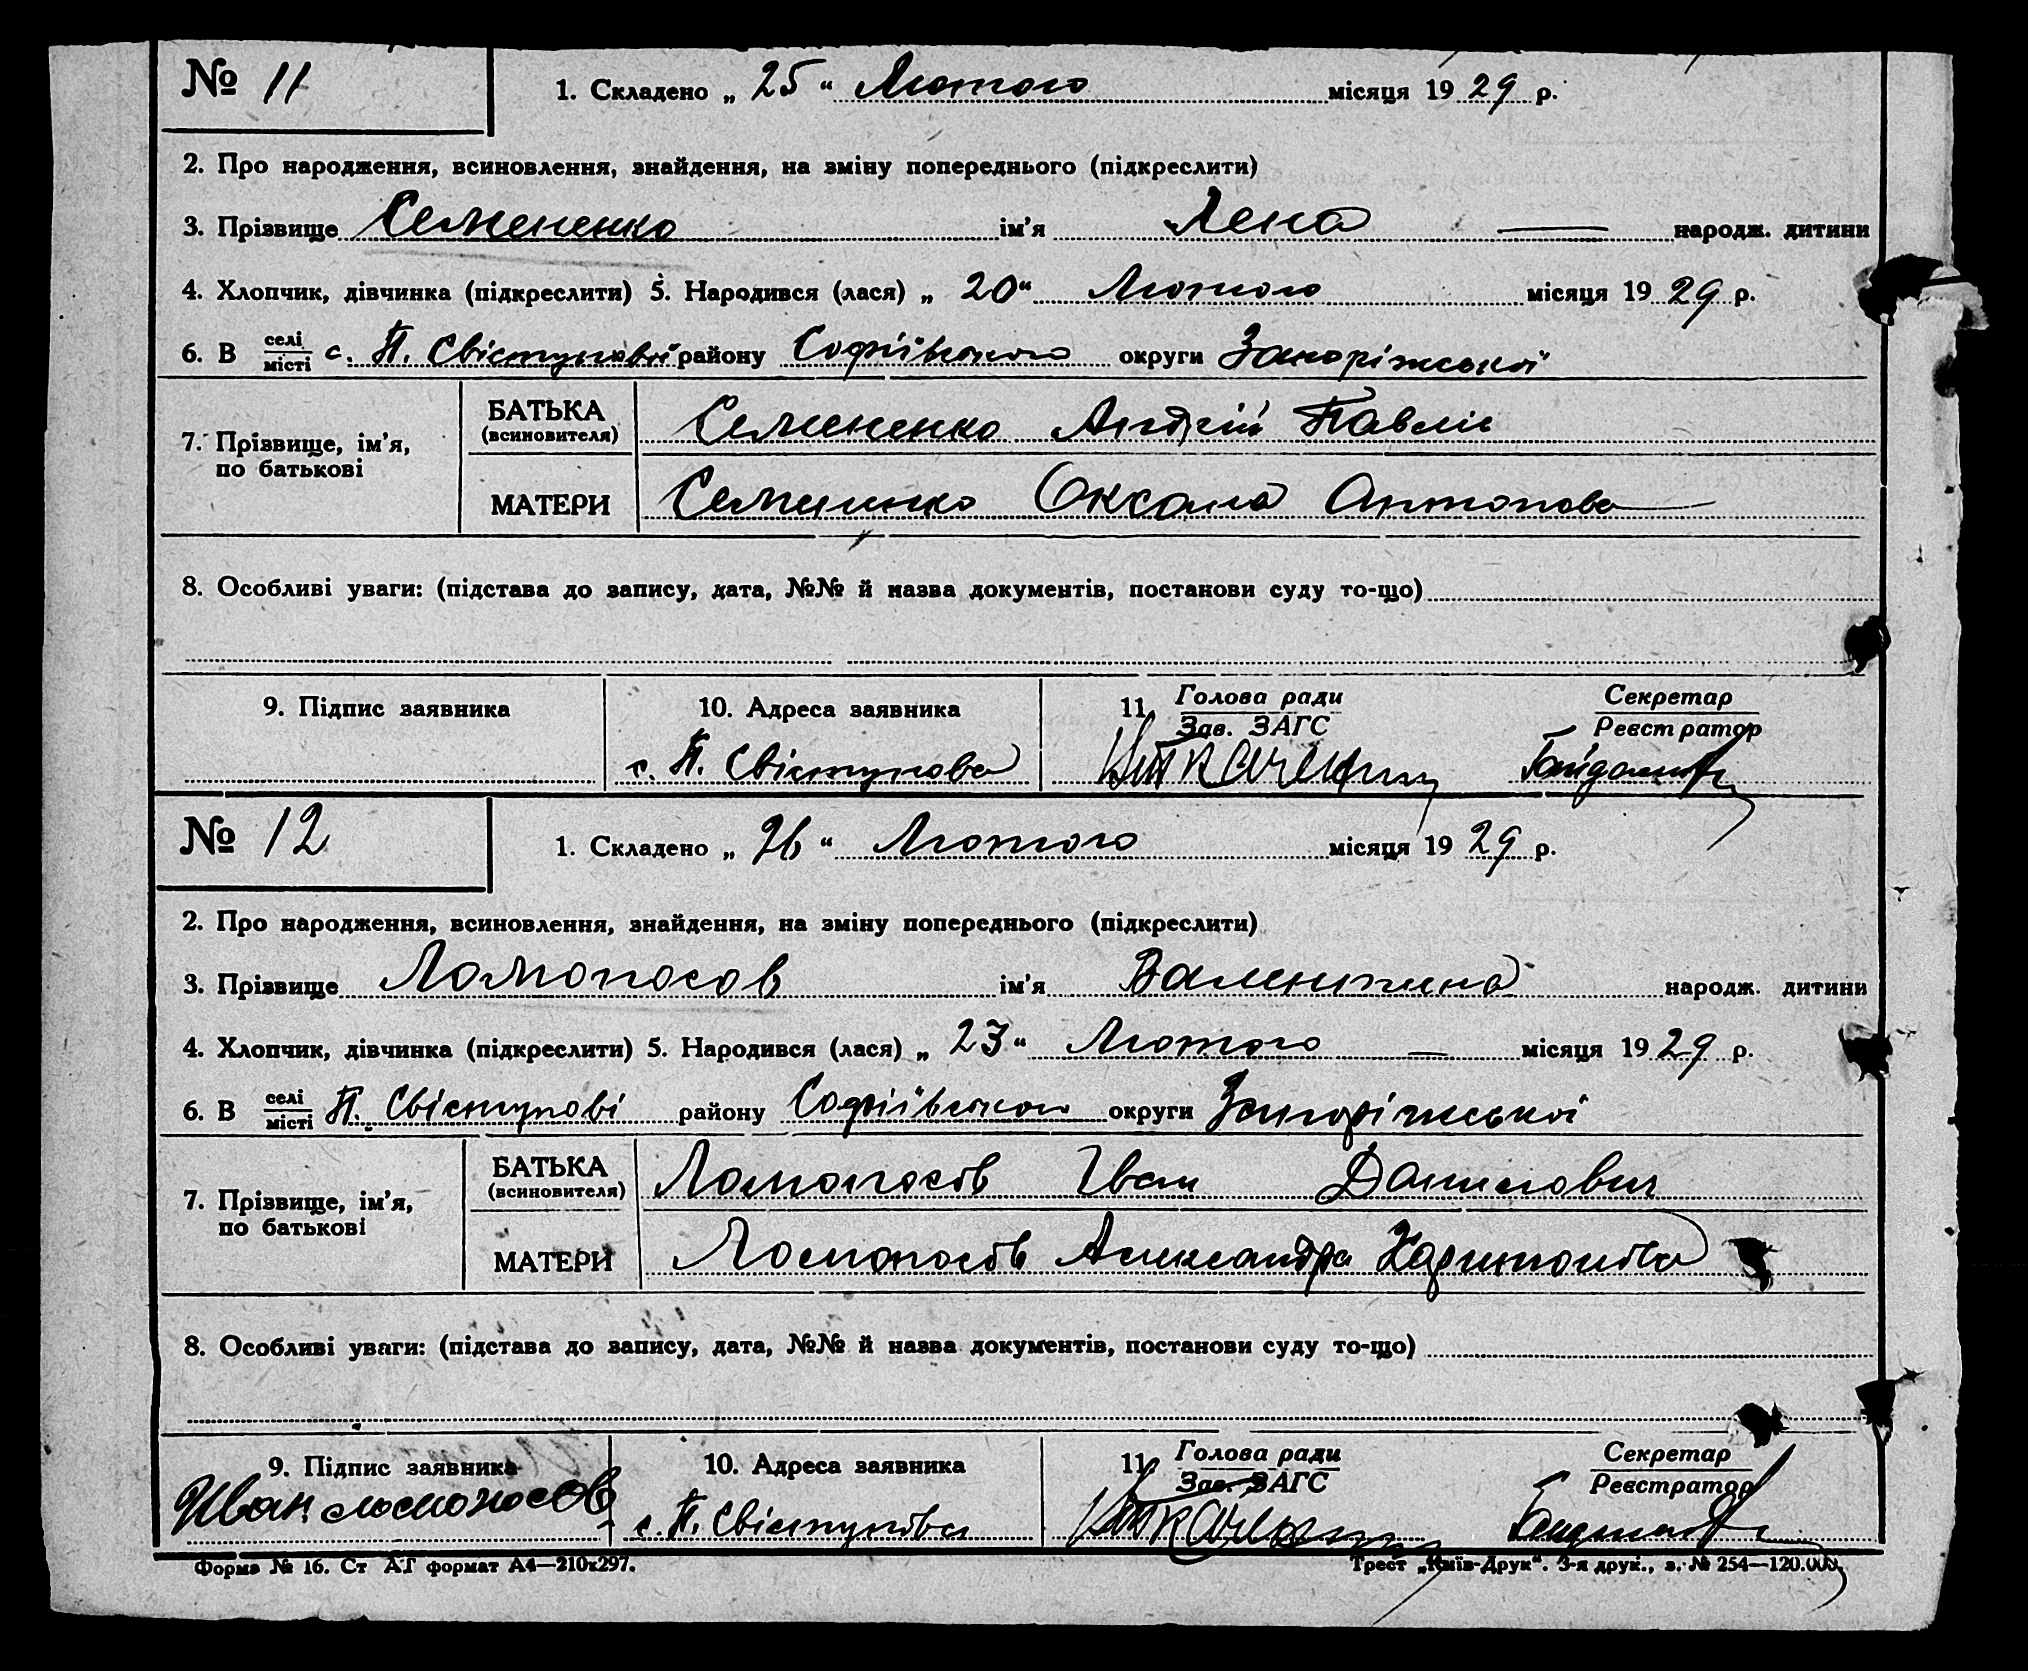 № 11 1. Складено „ 25 “ Лютого місяця 19 29 р.
2. Про народження, всиновлення, знайдення, на зміну попереднього (підкреслити)
3. Прізвище Семененко ім'я Лена — народж. дитини
4. Хлопчик, дівчинка (підкреслити) 5. Народився (лася) „ 20 “ Лютого місяця 19 29 р.
6. В селі/місті с. П. Свістуновці району Софіївського округи Запоріжської
7. Прізвище, ім'я, по батькові
БАТЬКА (всиновителя) Семененко Андрій Павлів
МАТЕРИ Семененко Оксана Антонова
8. Особливі уваги: (підстава до запису, дата, №№ й назва документів, постанови суду то-що)
9. Підпис заявника 10. Адреса заявника 11. Голова ради / Зав. ЗАГС Секретар / Реєстратор
с. П. Свістунова
№ 12 1. Складено „ 26 “ Лютого місяця 19 29 р.
2. Про народження, всиновлення, знайдення, на зміну попереднього (підкреслити)
3. Прізвище Ломоносов ім'я Валентина народж. дитини
4. Хлопчик, дівчинка (підкреслити) 5. Народився (лася) „ 23 “ Лютого — місяця 19 29 р.
6. В селі/місті П. Свістунові району Софіївського округи Запоріжської
7. Прізвище, ім'я, по батькові
БАТЬКА (всиновителя) Ломоносов Іван Данилович
МАТЕРИ Ломоносов Александра Харитонова
8. Особливі уваги: (підстава до запису, дата, №№ й назва документів, постанови суду то-що)
9. Підпис заявника 10. Адреса заявника 11. Голова ради / Зав. ЗАГС Секретар / Реєстратор
Иван ломоносов с. П. Свістунова
Форма № 16. Ст АТ формат А4—210х297. Трест „Київ-Друк“. 3-я друк., з. № 254—120.000.